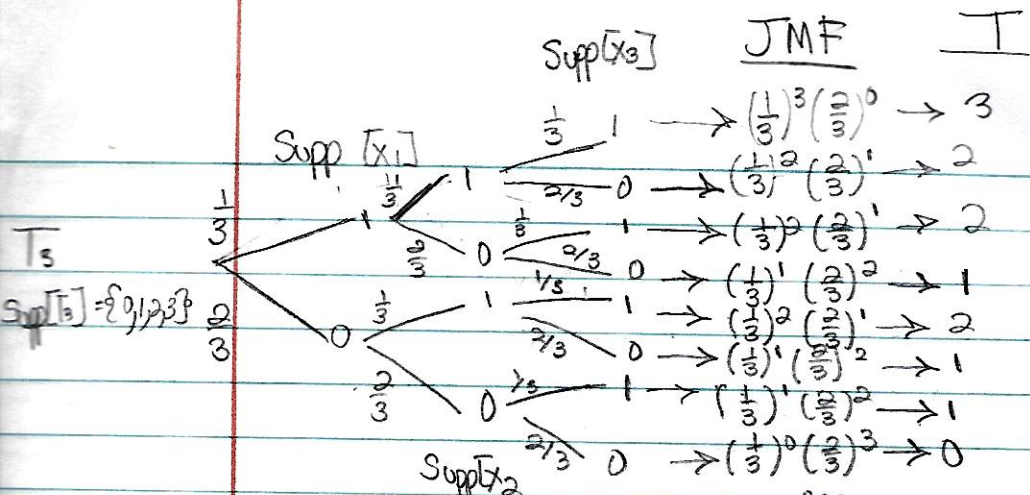 Supp[X3] JMF T
1/3 1 → (1/3)^3 (2/3)^0 → 3
Supp [X1] 1/3 1 2/3 0 → (1/3)^2 (2/3)^1 → 2
1/3 1 1/3 1 → (1/3)^2 (2/3)^1 → 2
T3 2/3 0 2/3 0 → (1/3)^1 (2/3)^2 → 1
Supp[T3] = {0,1,2,3} 1/3 1 1/3 1 → (1/3)^2 (2/3)^1 → 2
2/3 0 2/3 0 → (1/3)^1 (2/3)^2 → 1
2/3 0 1/3 1 → (1/3)^1 (2/3)^2 → 1
2/3 0 → (1/3)^0 (2/3)^3 → 0
Supp[X2